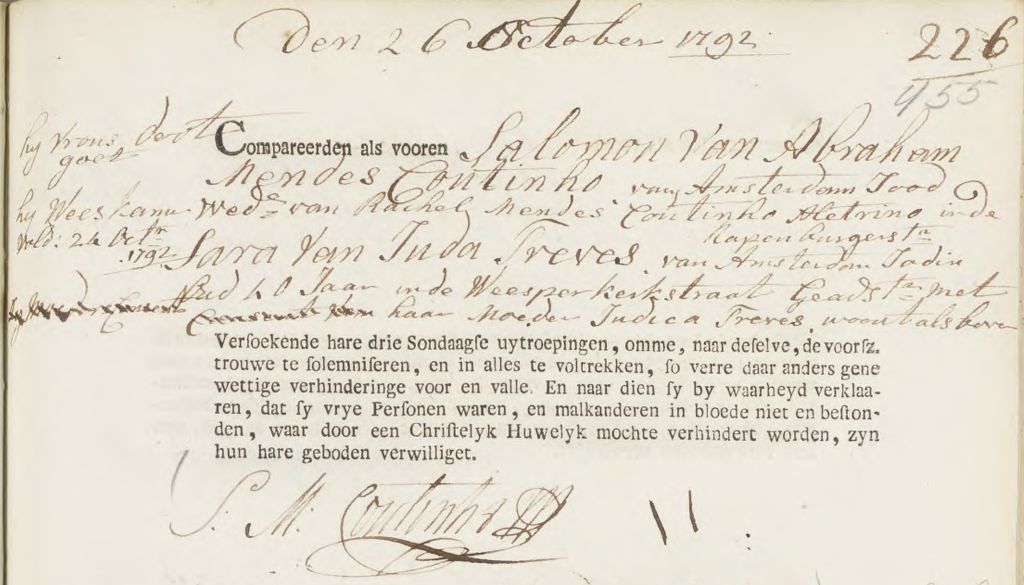 Den 26 October 1792
226
455
hy vrouws doot
goet
hy Weeskamr
vold: 24 Octr
1792
Compareerden als vooren Salomon Van Abraham
Mendes Coutinho van Amsterdam Jood
Wedr van Rachel Mendes Coutinho Aletrino in de
Rapenburgerstr
Sara Van Juda Treves van Amsterdam Jodin
Oud 40 Jaar in de Weesperkerkstraat Geadstr met
haar Moeder Judica Treves woont als boven
Verſoekende hare drie Sondaagſe uytroepingen, omme, naar deſelve, de voorſz.
trouwe te ſolemniſeren, en in alles te voltrekken, ſo verre daar anders gene
wettige verhinderinge voor en valle. En naar dien ſy by waarheyd verklaa-
ren, dat ſy vrye Perſonen waren, en malkanderen in bloede niet en beſton-
den, waar door een Chriſtelyk Huwelyk mochte verhindert worden, zyn
hun hare geboden verwilliget.
S: M: Coutinho